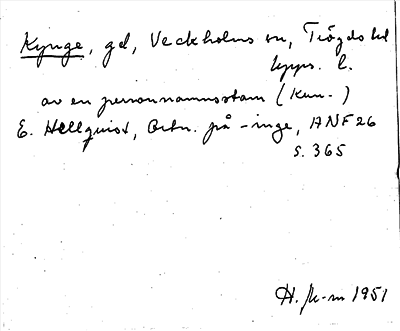 Kynge, gd, Veckholms sn, Trögds hd
Upps. l.
av en personnamnsstam (Kun-)
E. Hellquist, Ortn. på -inge, ANF 26
s. 365
H. 1951